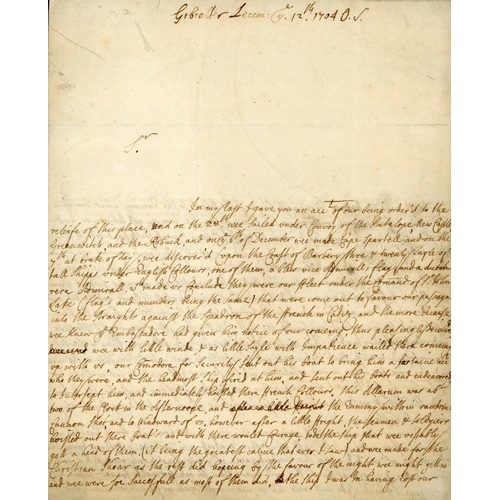 Gibraltr Decem: ye 12th 1704 O. S.
Sr
In my last I gave you an acc: of our being order'd to the
releife of this place, and on the wee sailed under Convoy of the Antelope New Castle
Greenwich, and the and on ye 6th of December wee made Cape Spartell and on the
7th at break of day, wee discover'd upon the Coast of Barbery three & twenty sayle of
tall Ships under English Collours, one of them, a blew vice Admirall's flag and a dutch
rere Admirall, made us Conclude they were our fleet under the Comand of Sr John
Leake (flag's and number, being the same) that were come out to favour our passage
into the Straight against the Squadron of the French in Cadiz, and the more because
wee knew ye Embassadore had given him notice of our comeing, thus pleasingly
wee with little winde & as little sayle with Impatience waited there comeing
up with us, our Comodore for Security sent out his boat to bring him a certaine acc:
who they were, and the headmost Ship fired at him, and sent out his boats and endeavored
to Intercept him, and immediately hoisted there french Collours, this Allarum was abt
two of the Clock in the afternoone, and the Ennimy within random
Cannon shot, and to Windward of us, however after a little fright, the seamen & soldyers
hoysed out there boat's and with there wonted Courage, tow'd the ship that wee visably
gott a head of them (it being the greatest calme that ever I saw) and wee made for the
Christian shoar as the rest did hopeing by the favour of the night wee might gett in
and wee were soe successfull as most of them did, the ship I was in haveing lost our